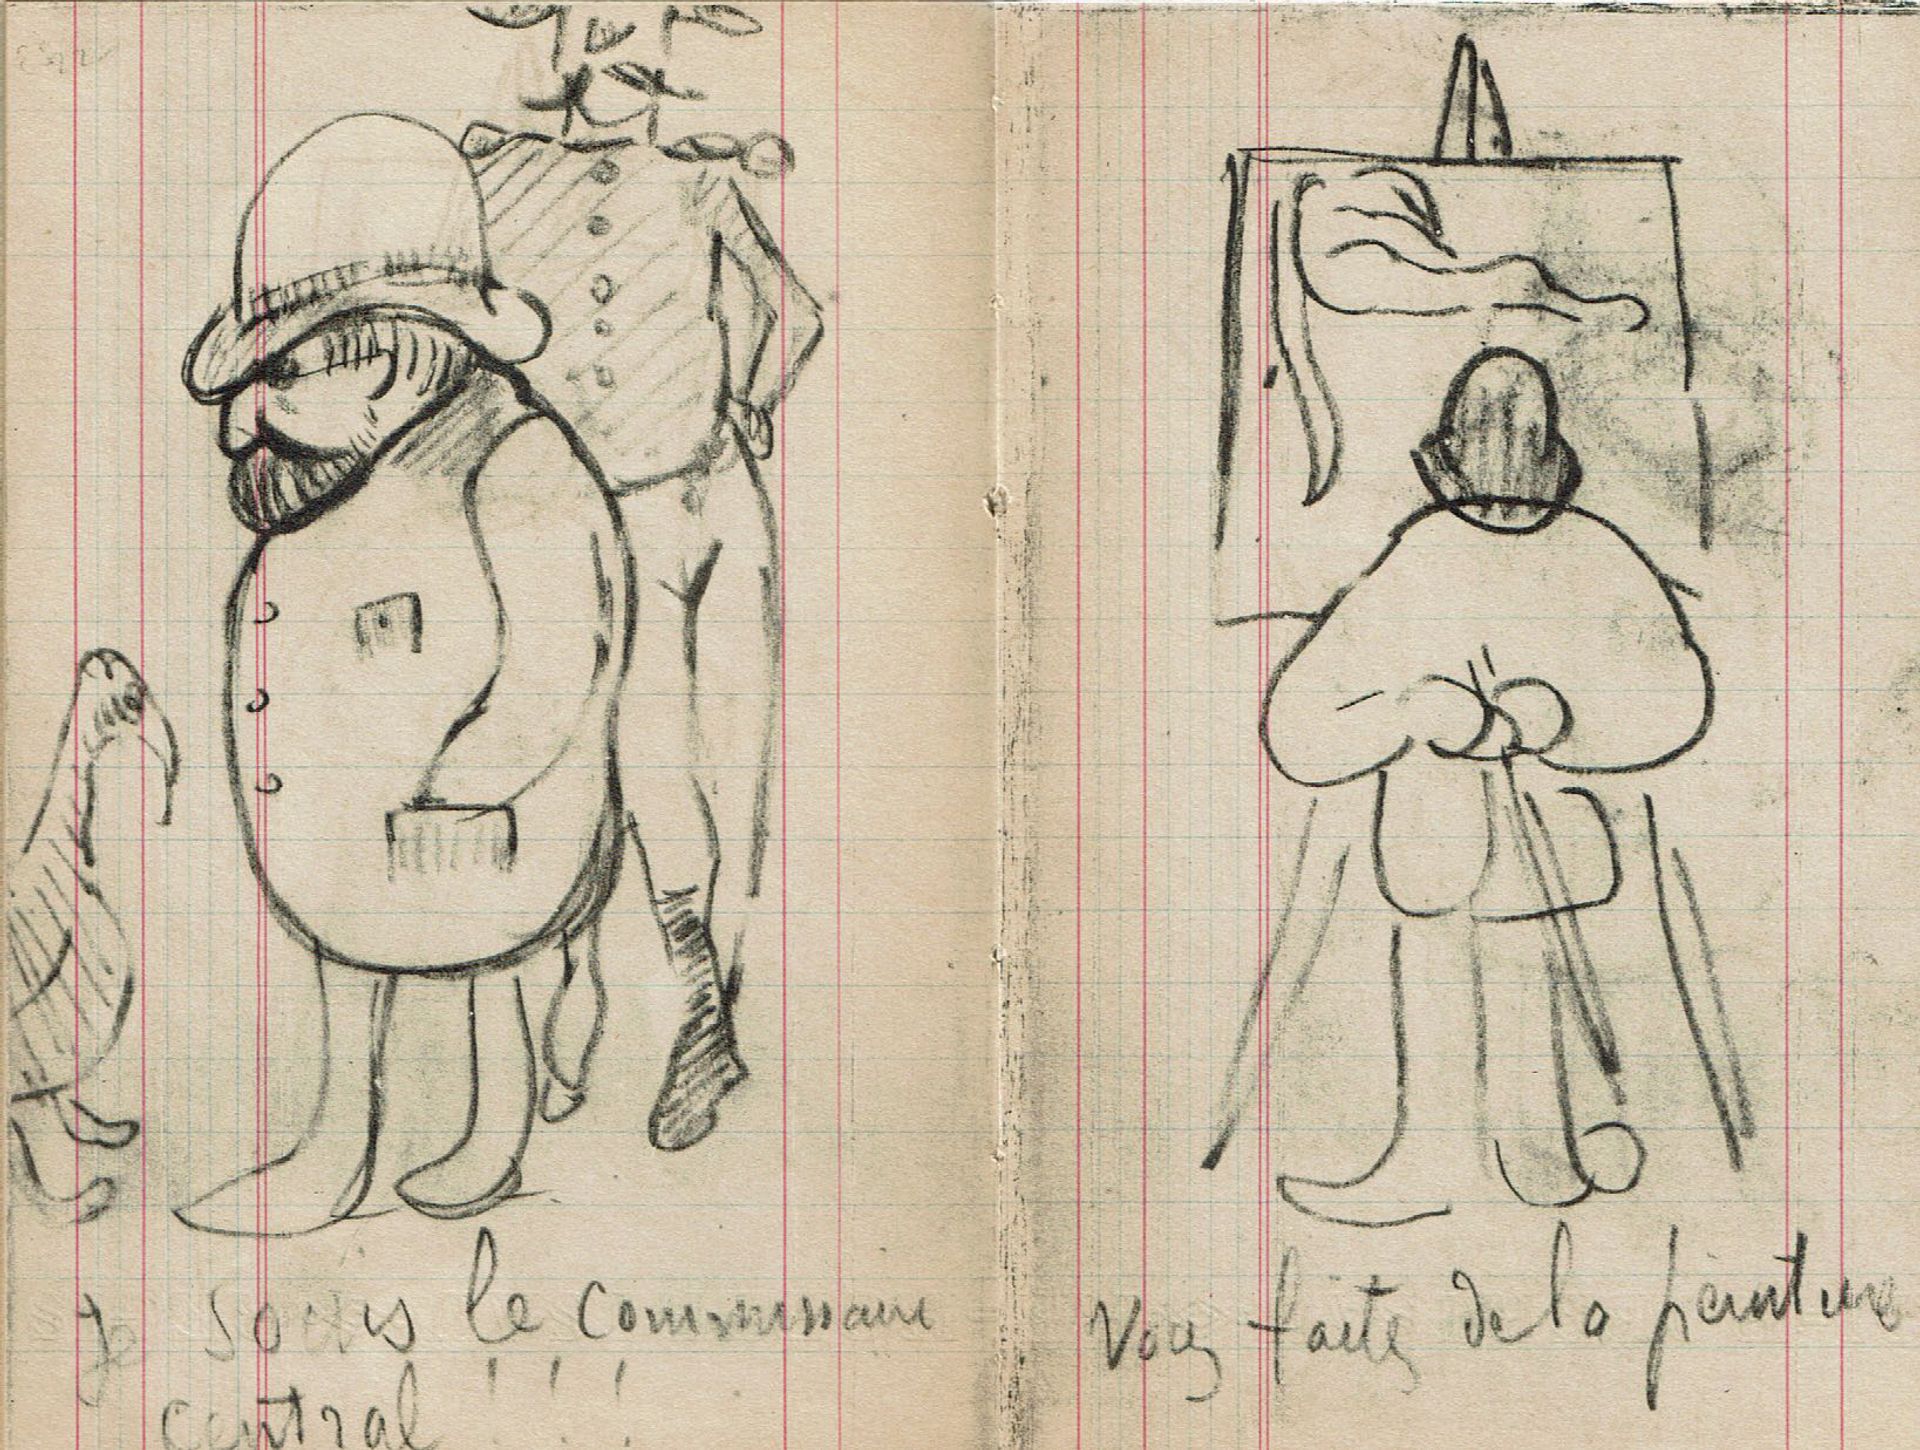 Je souis le commissaire
central ! ! !
Vous faites de la peinture